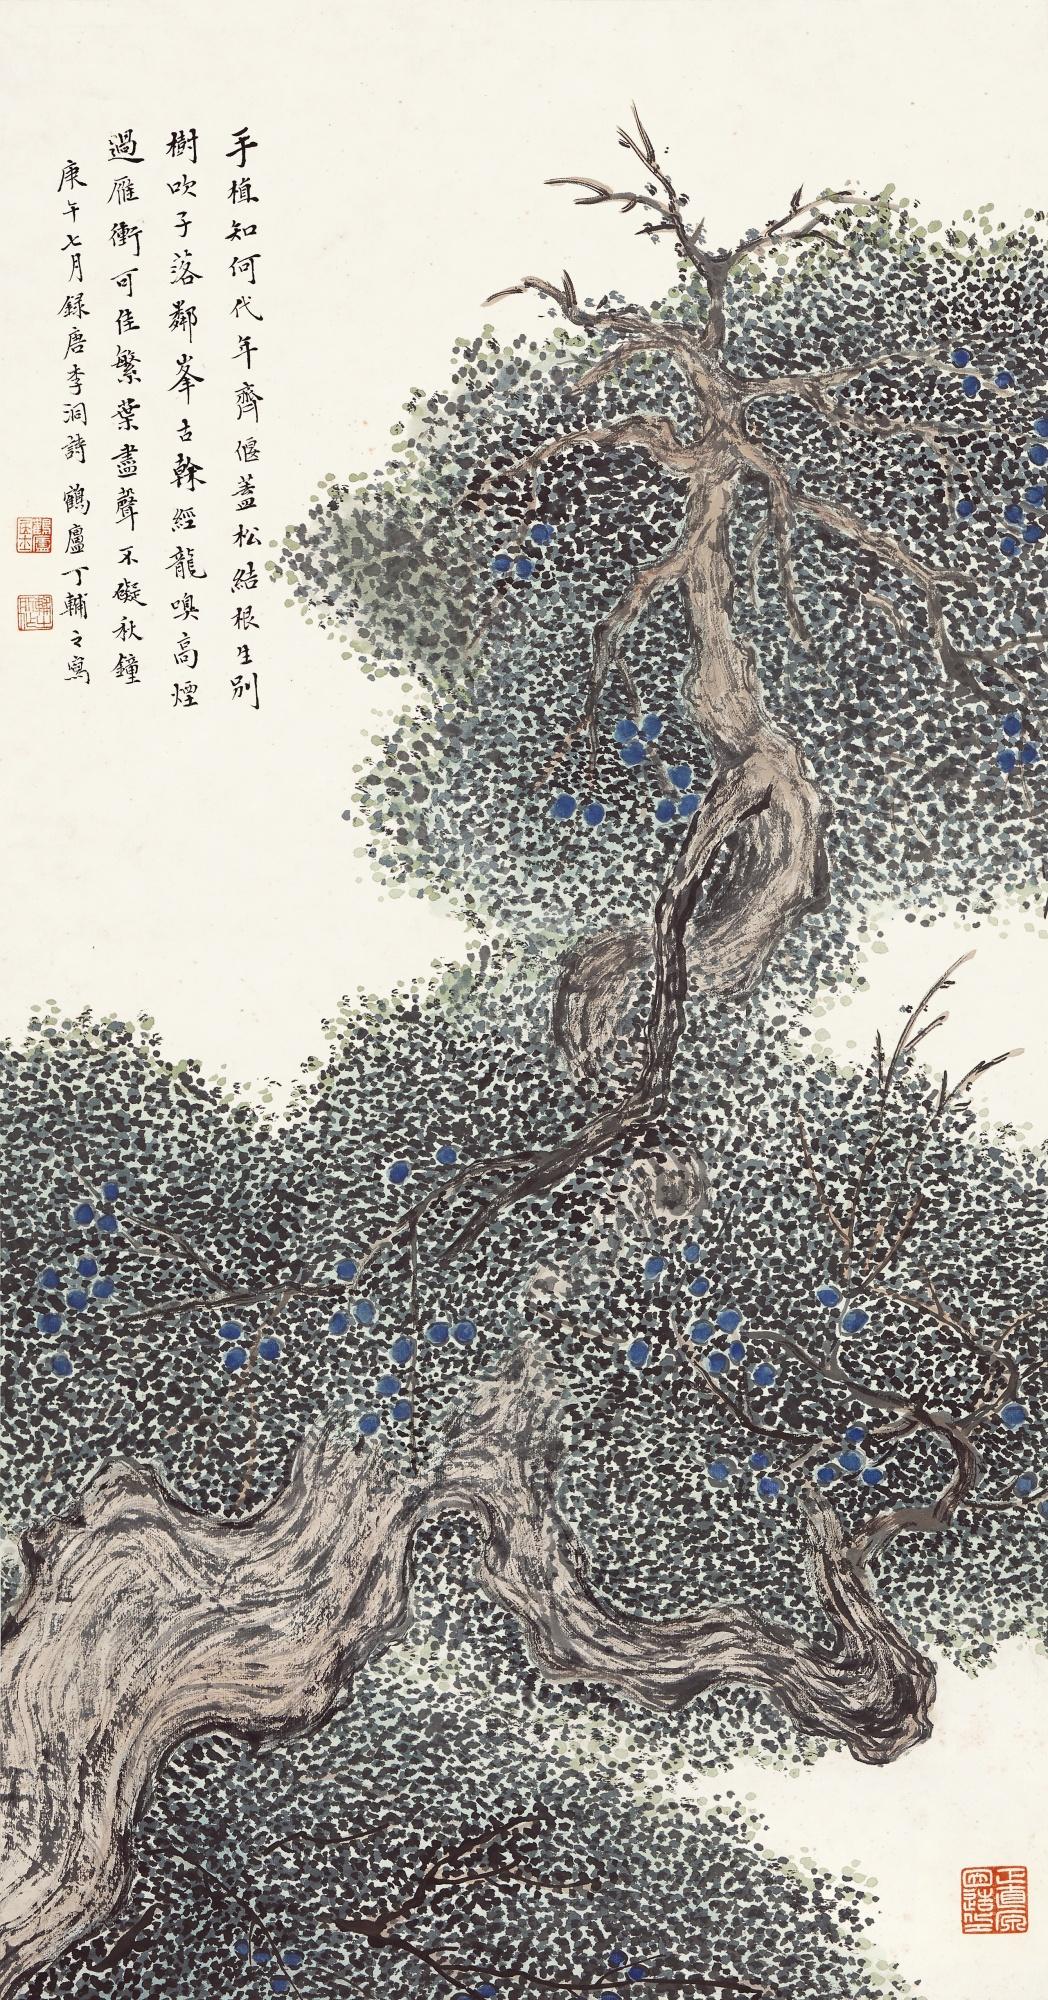 手植知何代年齊偃蓋松結根生別
樹吹子落鄰峯古榦經龍嗅高煙
過雁衝可佳繁葉盡聲不礙秋鐘
庚午七月録唐李洞詩鶴廬丁輔之寫
鶴廬